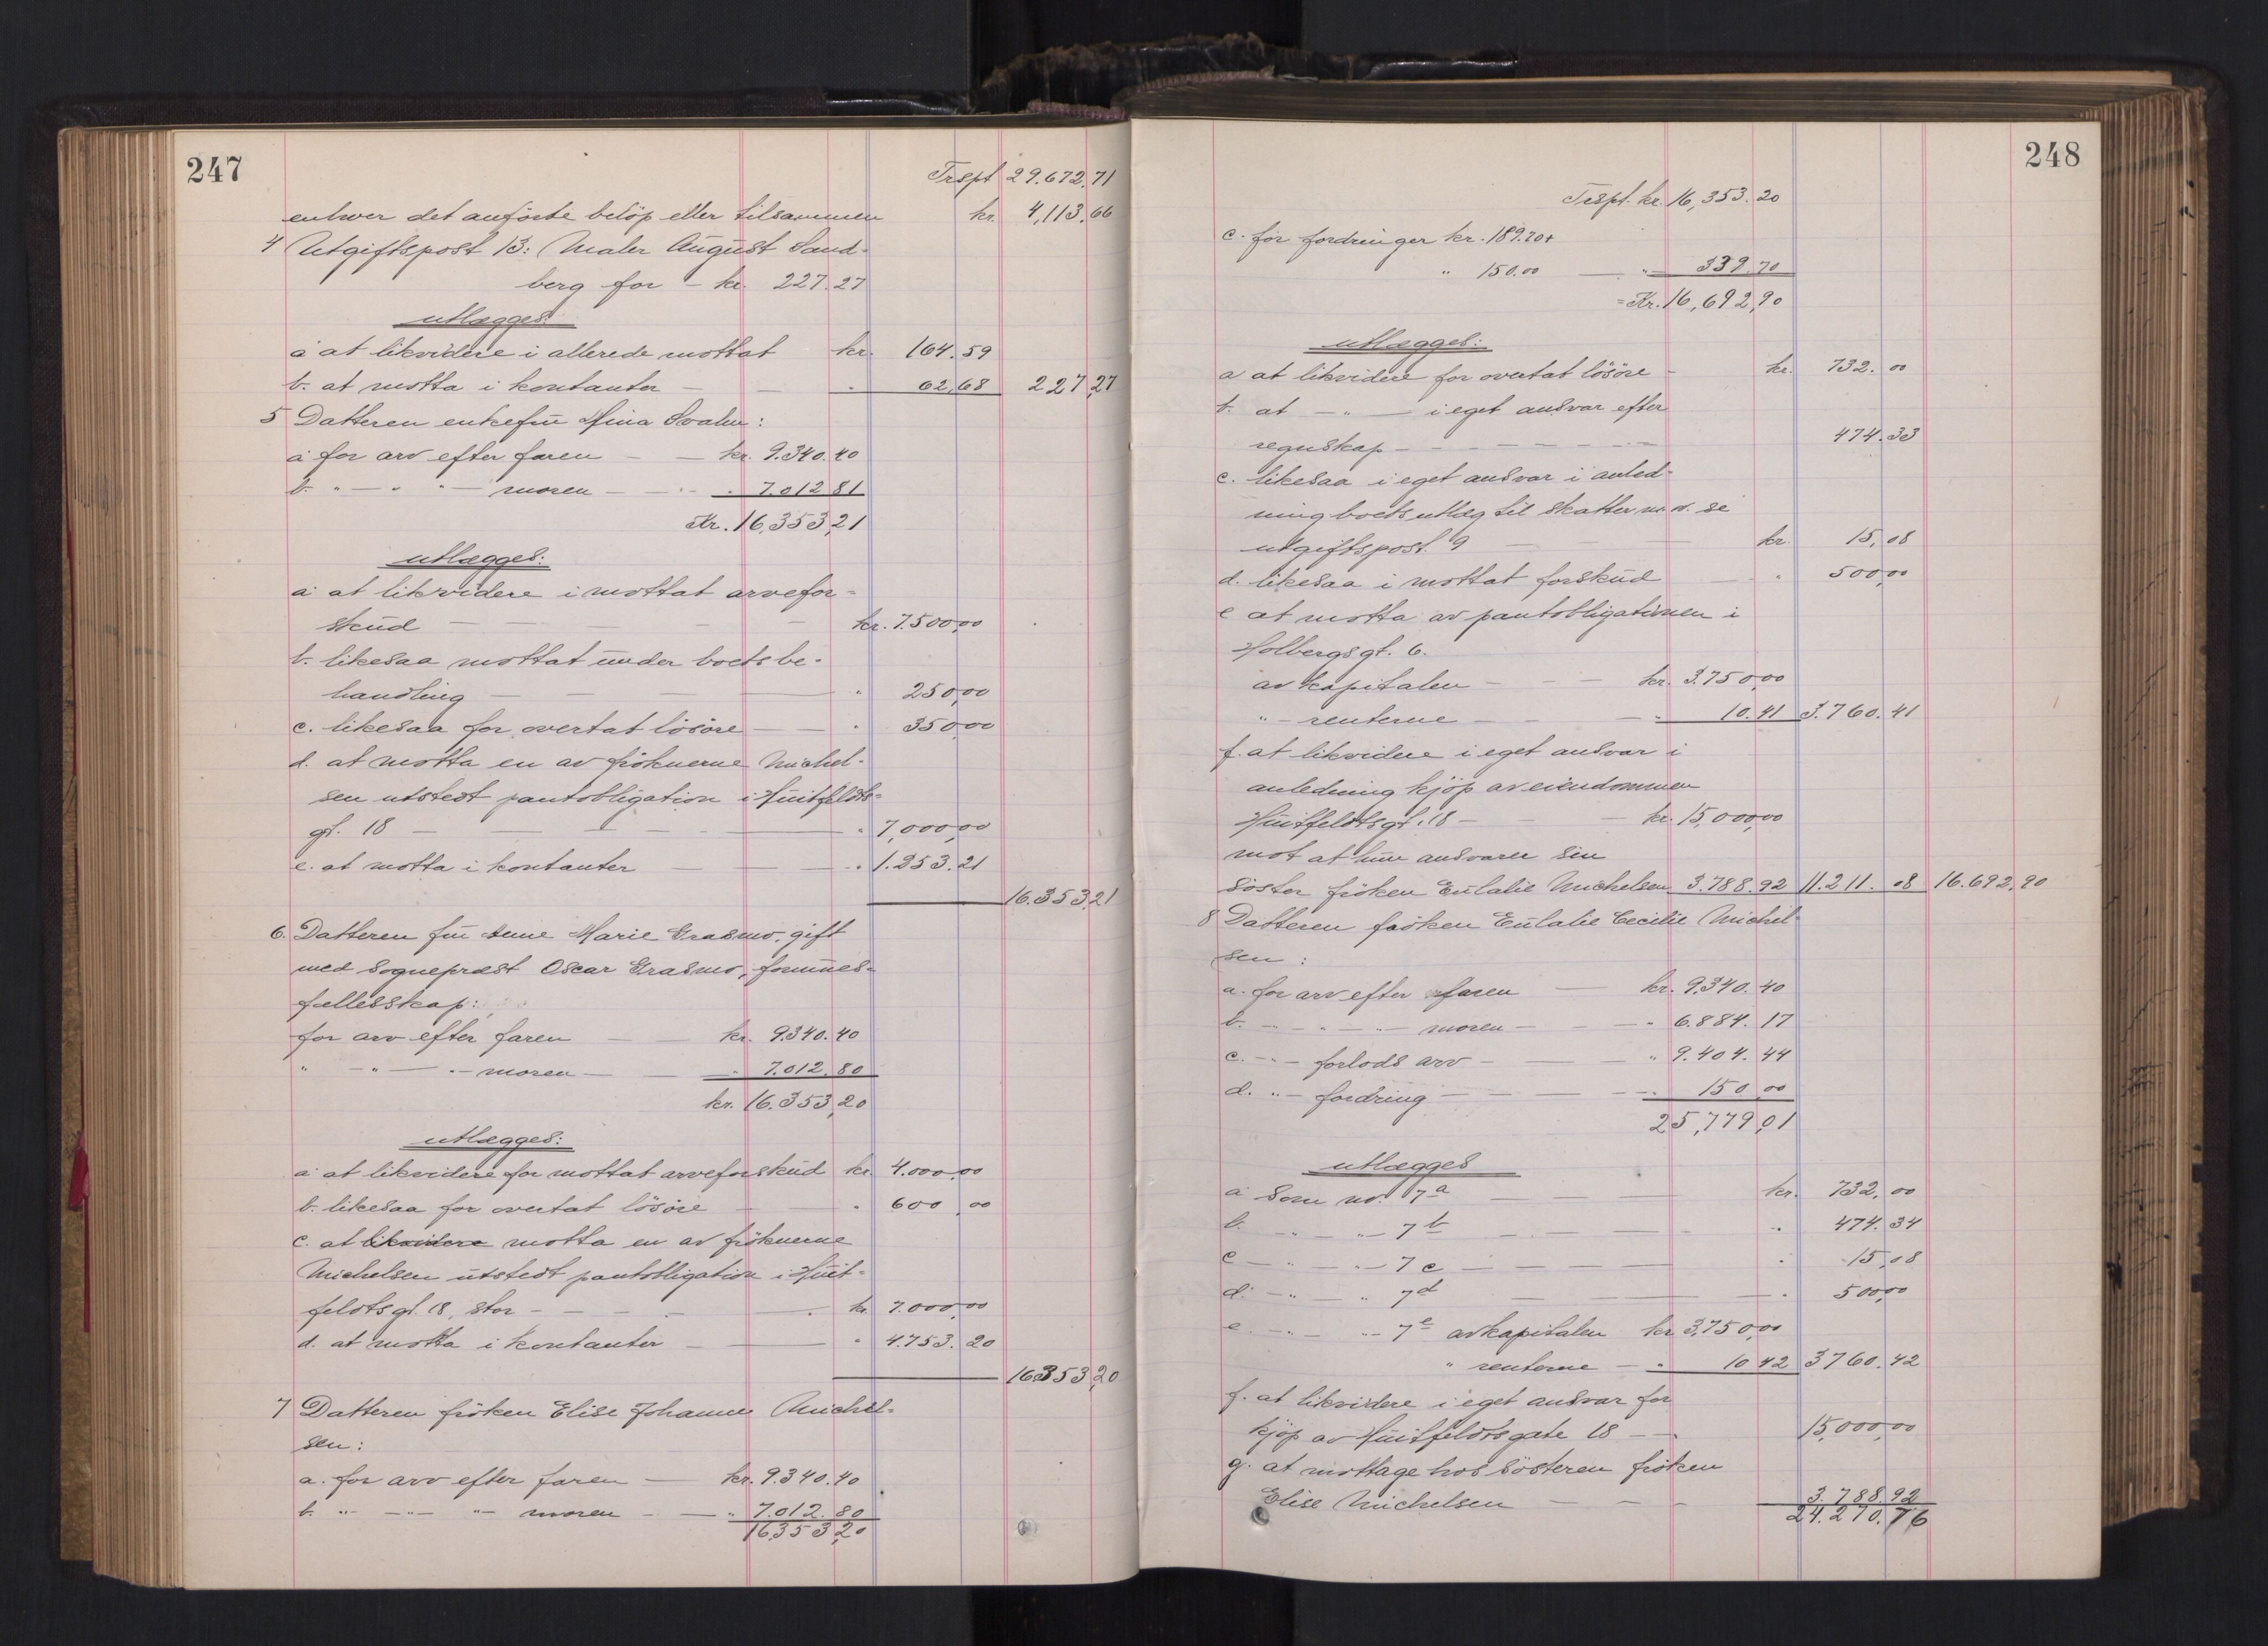 247
Trspt 29.672,71
enhver det anförte belöp eller tilsammen kr. 4,113,66
4 Utgiftspost 13: Maler August Sand-
berg for - kr. 227.27
utlægges:
a at likvidere i allerede mottat kr. 164.59
b. at motta i kontanter — — " 62,68 227,27
5 Datteren enkefru Mina Svalin:
a for arv efter faren — — kr. 9.340.40
b. " — " " — moren — — " 7.012 81
Kr. 16,353,21
utlægges:
a at likvidere i mottat arvefor-
skud — — — — — kr. 7.500,00
b. likesaa mottat under boets be-
handling — — — — " 250,00
c. likesaa for overtat lösöre — — " 350,00
d. at motta en av fröknerne Michel-
sen utstedt pantobligation i Huitfeldts-
gt. 18 — — — — — " 7,000,00
e. at motta i kontanter — — — " 1.253.21
16.353,21
6. Datteren fru Anne Marie Erasmo, gift
med sogneprest Oscar Erasmo, formues-
fællesskap:
for arv efter faren — — kr. 9.340.40
" — " — " — moren — — " 7.012.80
kr. 16.353,20
utlægges:
a at likvidere for mottat arveforskud kr. 4.000,00
b. likesaa for overtat lösöre — — " 600,00
c. at likvidere motta en av fröknerne
Michelsen utstedt pantobligation i Huit-
feldtsgt. 18, stor - — — — kr. 7.000,00
d. at motta i kontanter — — " 4.753.20
16.353,20
7 Datteren fröken Elise Johanne Michel-
sen:
a. for arv efter faren — kr. 9.340.40
b. " — " — " — moren — — " 7.012.80
16,353,20
248
Trspt. kr. 16,353.20
c. for fordringer kr. 189.70 +
" 150.00 — " 339.70
= Kr. 16,692,90
utlægges:
a at likvidere for overtat lösöre - kr. 732.00
b. at — " — i eget ansvar efter
regnskap — — — — — — 474.33
c. likesaa i eget ansvar i anled-
ning boets utlæg til skatter m.v. se
utgiftspost 9 — — — kr. 15,08
d. likesaa i mottat forskud — " 500,00
e at motta av pantobligationen i
Holbergsgt. 6.
av kapitalen — — — kr. 3.750,00
" — renterne — — — " 10.41 3.760.41
f. at likvidere i eget ansvar i
anledning kjöp av eiendommen
Huitfeldtsgt. 18 — — — kr. 15,000,00
mot at hun ansvarer sin
söster fröken Eulalie Michelsen 3.788.92 11.211.08 16.692,90
8 Datteren fröken Eulalie Cecilie Michel-
sen:
a. for arv efter faren — kr. 9.340.40
b. — " — " — moren — — " 6.884.17
c. — " — forlods arv — — " 9.404.44
d. " — fordring — — — " 150,00
25,779,01
utlægges
a som no. 7a — — — kr. 732,00
b. — " — " — 7b — — — " 474.34
c — " — " — 7c — — — " 15,08
d. — " — " 7d — — — " 500,00
e. — " — " — 7e av kapitalen kr. 3.750,00
" renterne — " 10.42 3760.42
f. at likvidere i eget ansvar for
kjöp av Huitfeldtsgate 18 — — 15,000,00
g. at mottage hos sösteren fröken
Elise Michelsen — — — 3.788.92
24.270.76